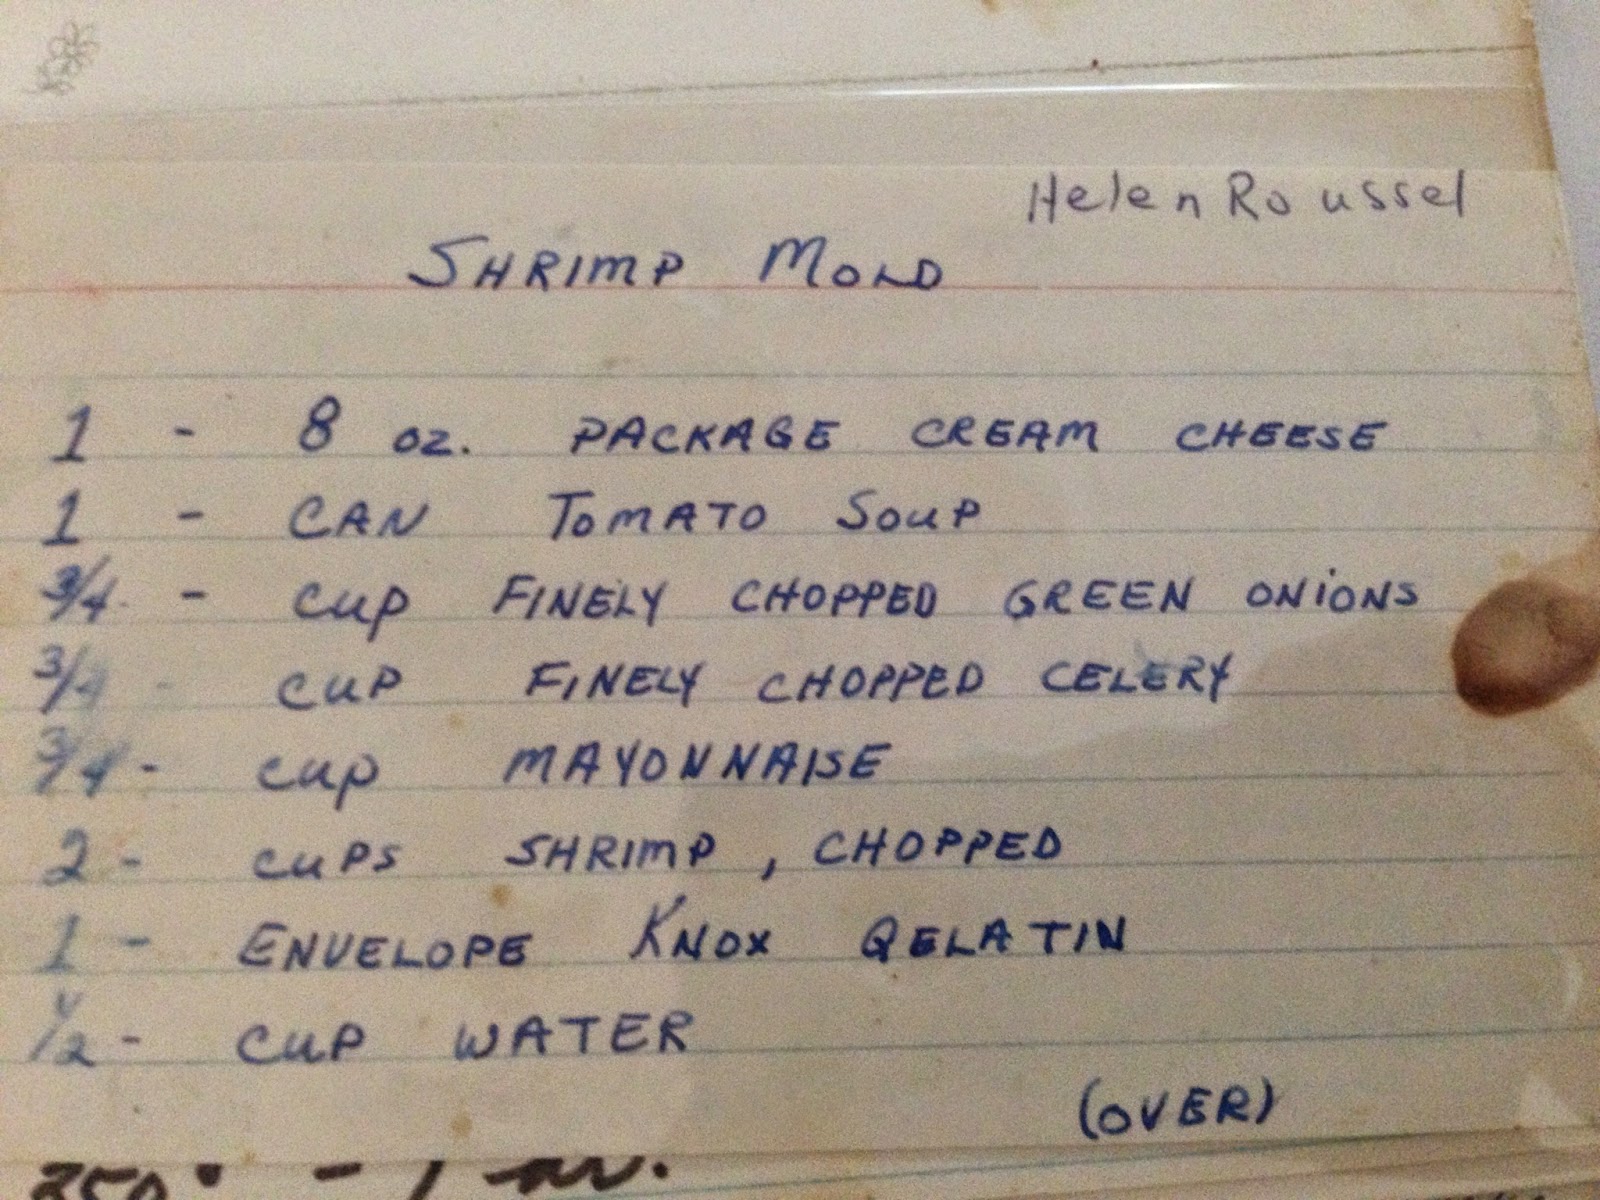 Helen Roussel
SHRIMP MOLD
1 - 8 oz. PACKAGE CREAM CHEESE
1 - CAN TOMATO SOUP
3/4 - CUP FINELY CHOPPED GREEN ONIONS
3/4 - CUP FINELY CHOPPED CELERY
3/4 - CUP MAYONNAISE
2 - CUPS SHRIMP, CHOPPED
1 - ENVELOPE KNOX GELATIN
1/2 - CUP WATER
(OVER)
350° - 1